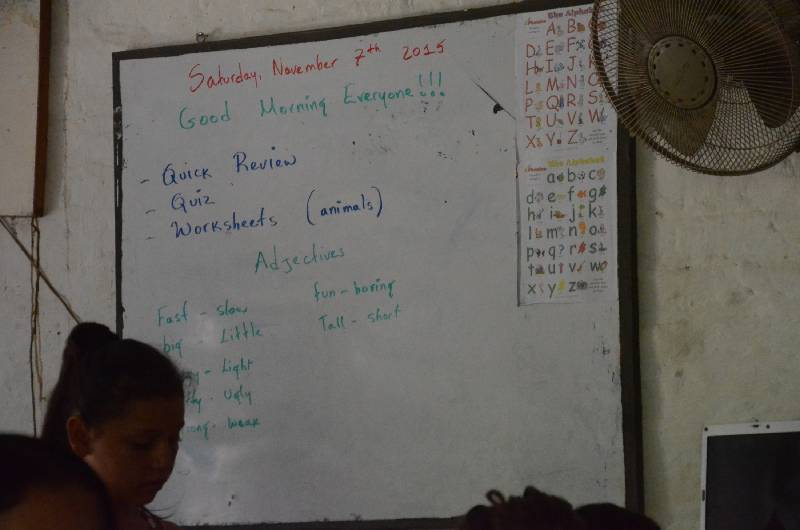 Saturday, November 7th 2015
Good Morning Everyone!!!
- Quick Review
- Quiz
- Worksheets (animals)
Adjectives
Fast - slow
big Little
Light
Ugly
weak
fun - boring
Tall - short
The Alphabet
A B
D E F
H I J K
L M N O
P Q R S
T U V W
X Y Z
The Alphabet
a b c
d e f g
h i j k
l m n o
p q r s
t u v w
x y z